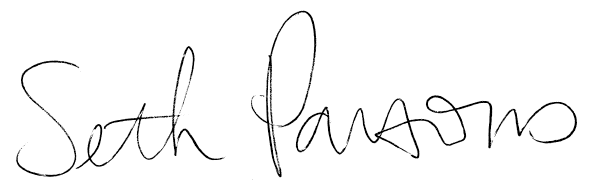 Seth Parsons